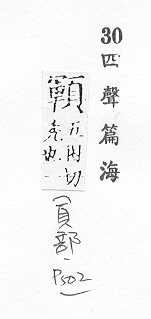 30
四聲篇海
顐
五困切
禿也
(頁部.
P502